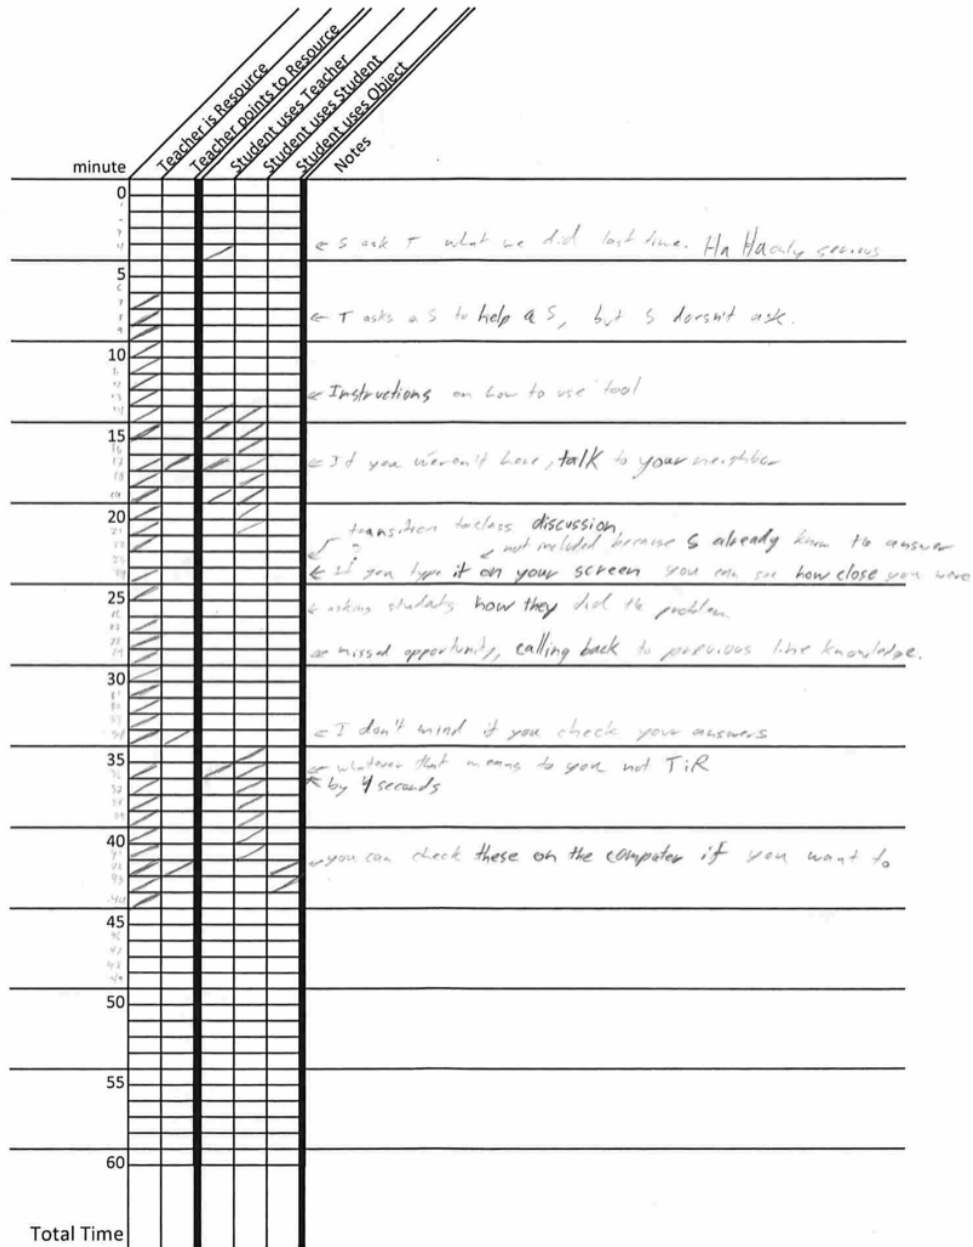 Teacher is Resource
Teacher points to Resource
Student uses Teacher
Student uses Student
Student uses Object
Notes
minute
0
4 ← S ask T what we did last time. Ha Ha only serious
5
7
8 ← T asks a S to help a S, but S doesn't ask.
9
10
13 ← Instructions on how to use tool
14
15
16
17 ← If you weren't here, talk to your neighbor
18
19
20
21 transition to class discussion,
22 not included because S already know the answer
24 ← If you type it on your screen you can see how close you were
25
26 ← asking students how they did the problem
27
28
29 ← missed opportunity, calling back to previous line knowledge.
30
31
32
33
34 ← I don't mind if you check your answers
35
36 ← whatever that means to you not TiR
37 by 4 seconds
38
39
40
41 ← you can check these on the computer if you want to
42
43
44
45
46
47
48
49
50
55
60
Total Time